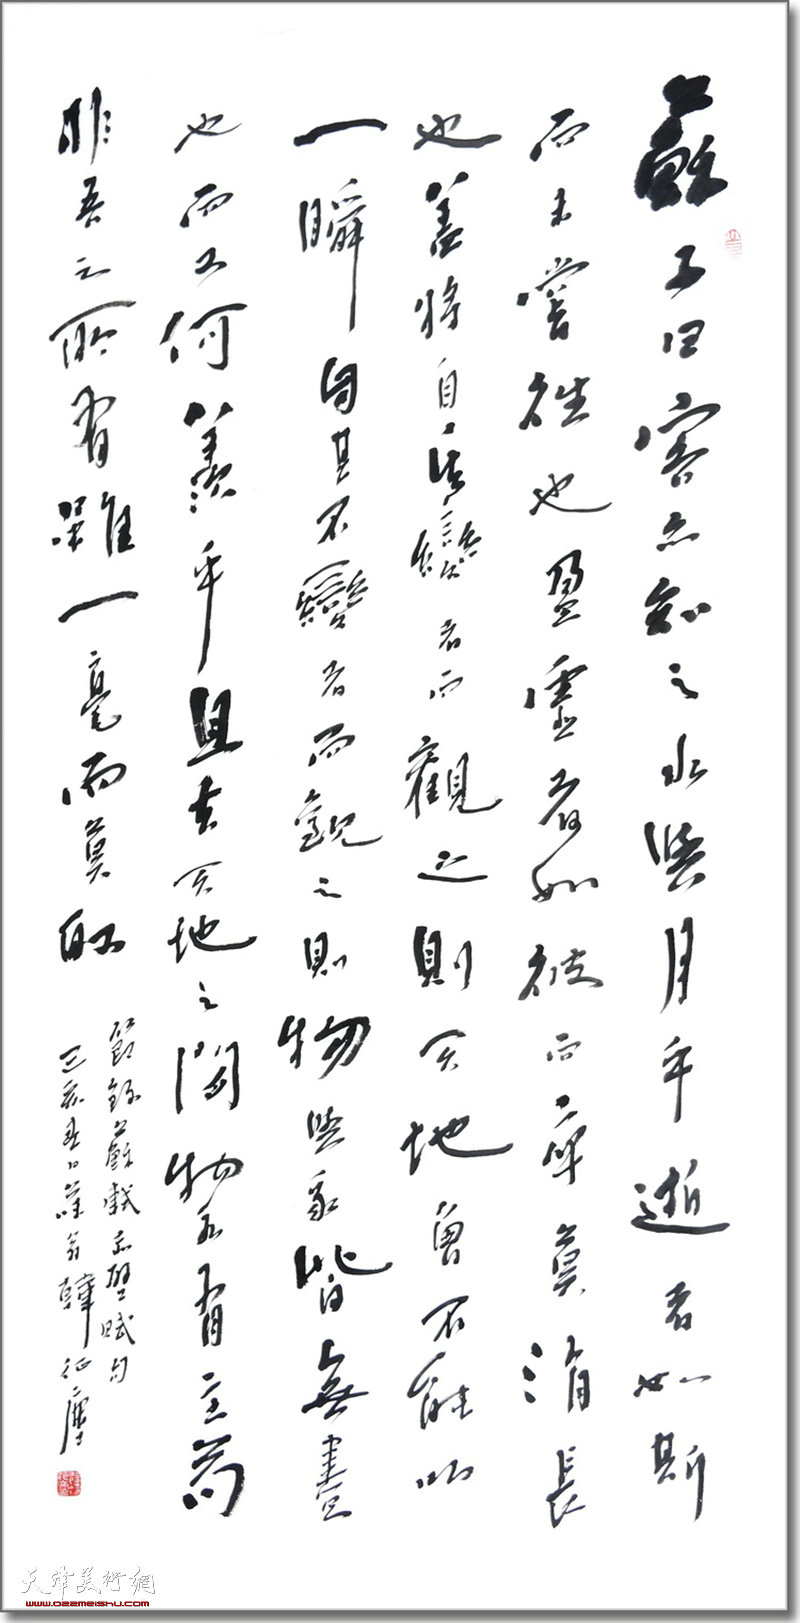 蘇子曰客亦知之水與月乎逝者如斯
而未嘗往也盈虛者如彼而卒莫消長
也蓋將自其變者而觀之則天地曾不能以
一瞬自其不變者而觀之則物與我皆無盡
也而又何羨乎且夫天地之間物各有主苟
非吾之所有雖一毫而莫取
節錄蘇軾赤壁賦句
己亥春日 翁韓征塵
天津美術網
www.022meishu.com